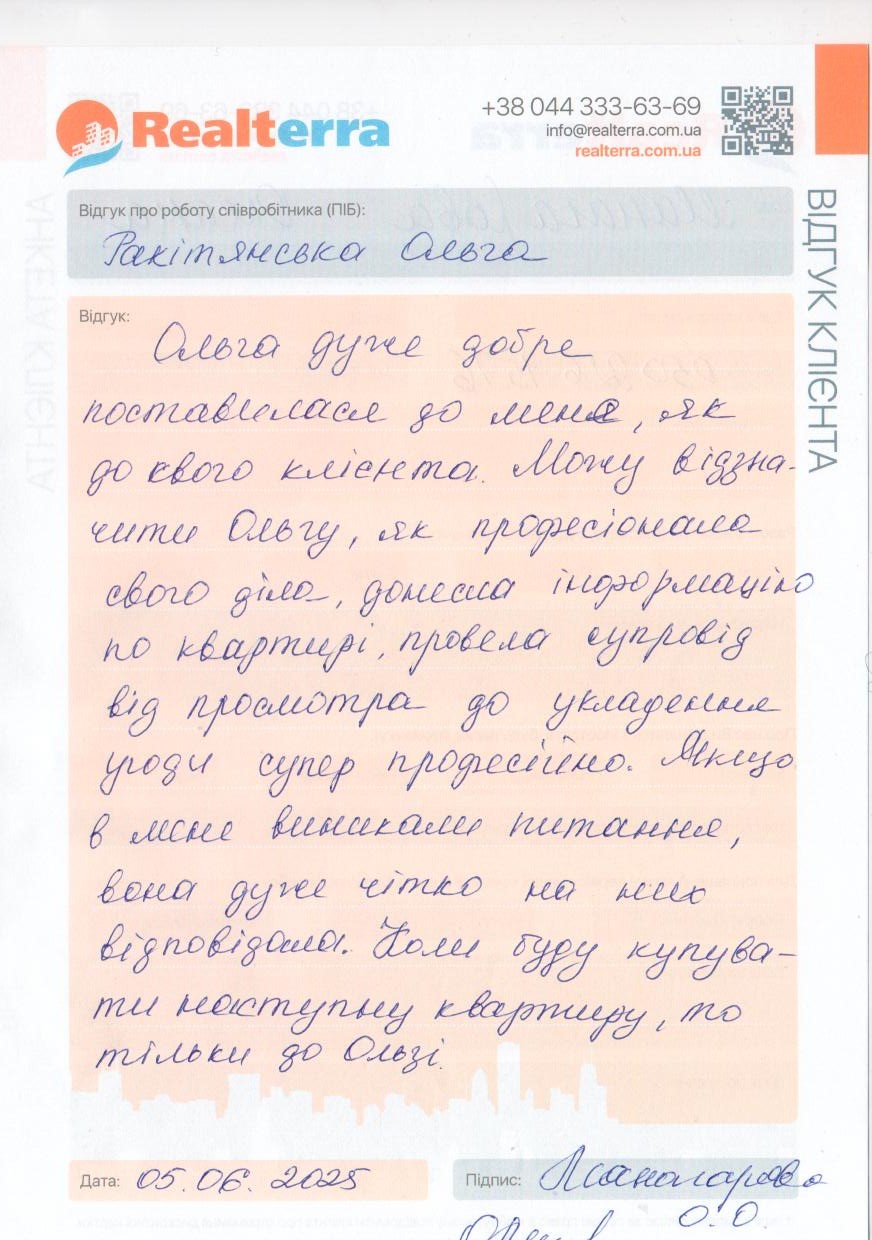 Realterra
+38 044 333-63-69
info@realterra.com.ua
realterra.com.ua
ВІДГУК КЛІЄНТА
Відгук про роботу співробітника (ПІБ):
Ракітянська Ольга
Відгук:
Ольга дуже добре
поставилася до мене, як
до квого клієнта. Можу відзна-
чити Ольгу, як професіонала
свого діла, донесла інформацію
по квартирі, провела супровід
від просмотра до укладення
угоди супер професійно. Якщо
в мене виникали питання,
вона дуже чітко на них
відповідала. Коли буду купува-
ти наступну квартиру, то
тільки до Ользі.
Дата: 05.06.2025
Підпис:
О.О.